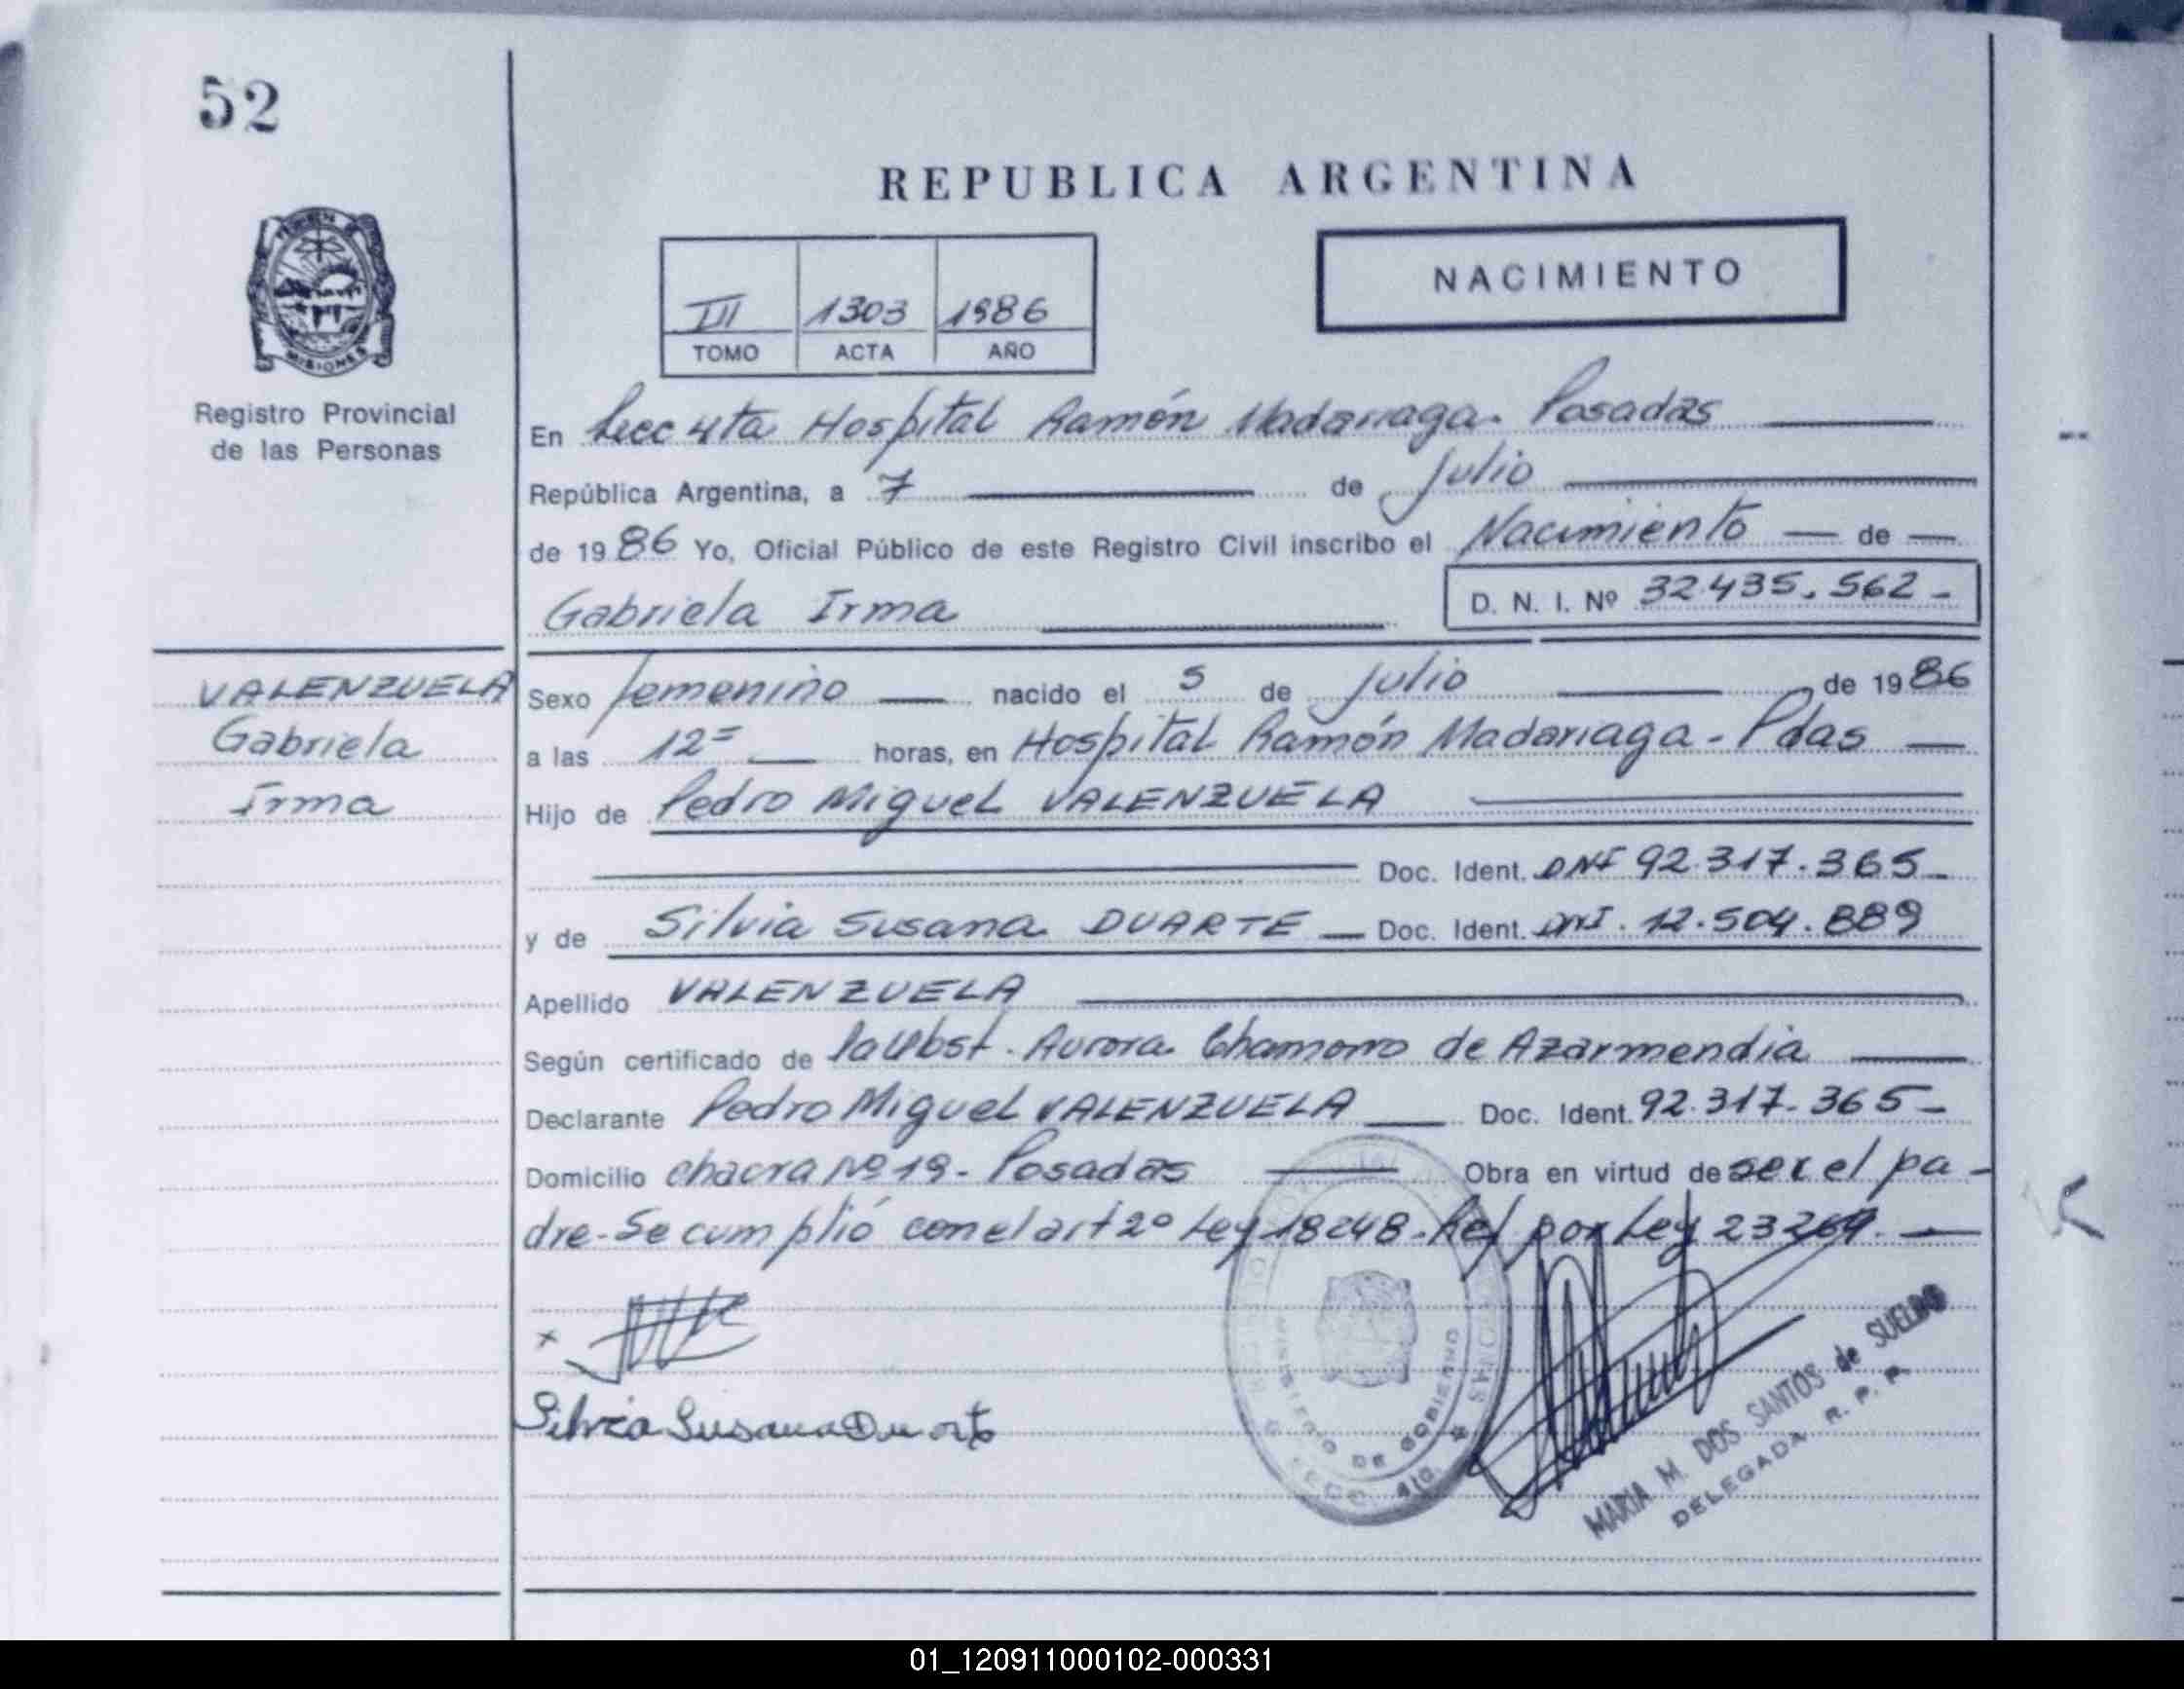 52
REPUBLICA ARGENTINA
NACIMIENTO
III 1303 1986
TOMO ACTA AÑO
MISIONES
Registro Provincial
de las Personas
En Secc 4ta Hospital Ramón Madariaga. Posadas
República Argentina, a 7 de Julio
de 1986 Yo, Oficial Público de este Registro Civil inscribo el Nacimiento de
Gabriela Irma D. N. I. Nº 32.435.562-
VALENZUELA
Gabriela
Irma
Sexo femenino nacido el 5 de Julio de 1986
a las 12= horas, en Hospital Ramón Madariaga - Pdas
Hijo de Pedro Miguel VALENZUELA
Doc. Ident. DNI 92.317.365-
y de Silvia Susana DUARTE Doc. Ident. DNI. 12.504.889
Apellido VALENZUELA
Según certificado de la Obst. Aurora Chamorro de Azarmendia
Declarante Pedro Miguel VALENZUELA Doc. Ident. 92.317.365-
Domicilio chacra Nº 19 - Posadas Obra en virtud de ser el pa-
dre. Se cumplió con el art 2º Ley 18248. Ref por Ley 23264.
x
Silvia Susana Duarte
MINISTERIO DE GOBIERNO
MARIA M. DOS SANTOS de SUELDO
DELEGADA R. P. P.
01_120911000102-000331